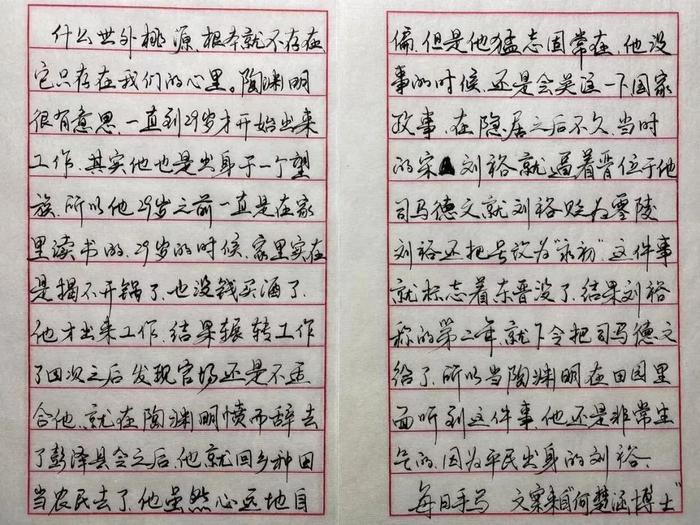 什么世外桃源，根本就不存在
它只存在我们的心里。陶渊明
很有意思，一直到29岁才开始出来
工作，其实他也是出身于一个望
族，所以他29岁之前一直是在家
里读书的，29岁的时候，家里实在
是揭不开锅了，也没钱买酒了，
他才出来工作，结果辗转工作
了四次之后，发现官场还是不适
合他，就在陶渊明愤而辞去
了彭泽县令之后，他就回乡种田
当农民去了，他虽然心远地自
偏，但是他猛志固常在，他没
事的时候，还是会关注一下国家
政事，在隐居之后不久，当时
的宋 刘裕就逼着晋 位于他
司马德文就刘裕贬为零陵
刘裕还把号改为“永初”，这件事
就标志着东晋没了，结果刘裕
称的第二年，就下令把司马德文
给了，所以当陶渊明在田园里
面听到这件事，他还是非常生
气的，因为平民出身的刘裕，
每日手写 文案来自“何楚涵博士”